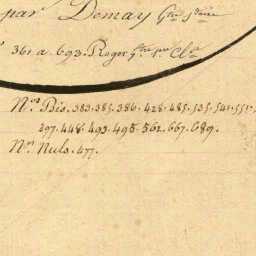 par Demay Gtre
361 a 693. Roger Gtre 1re Cle
Nos Bis. 383. 385. 386. 428. 485. 535. 541. 551.
297. 448. 493. 495. 562. 667. 689.
Nos Nuls. 477.